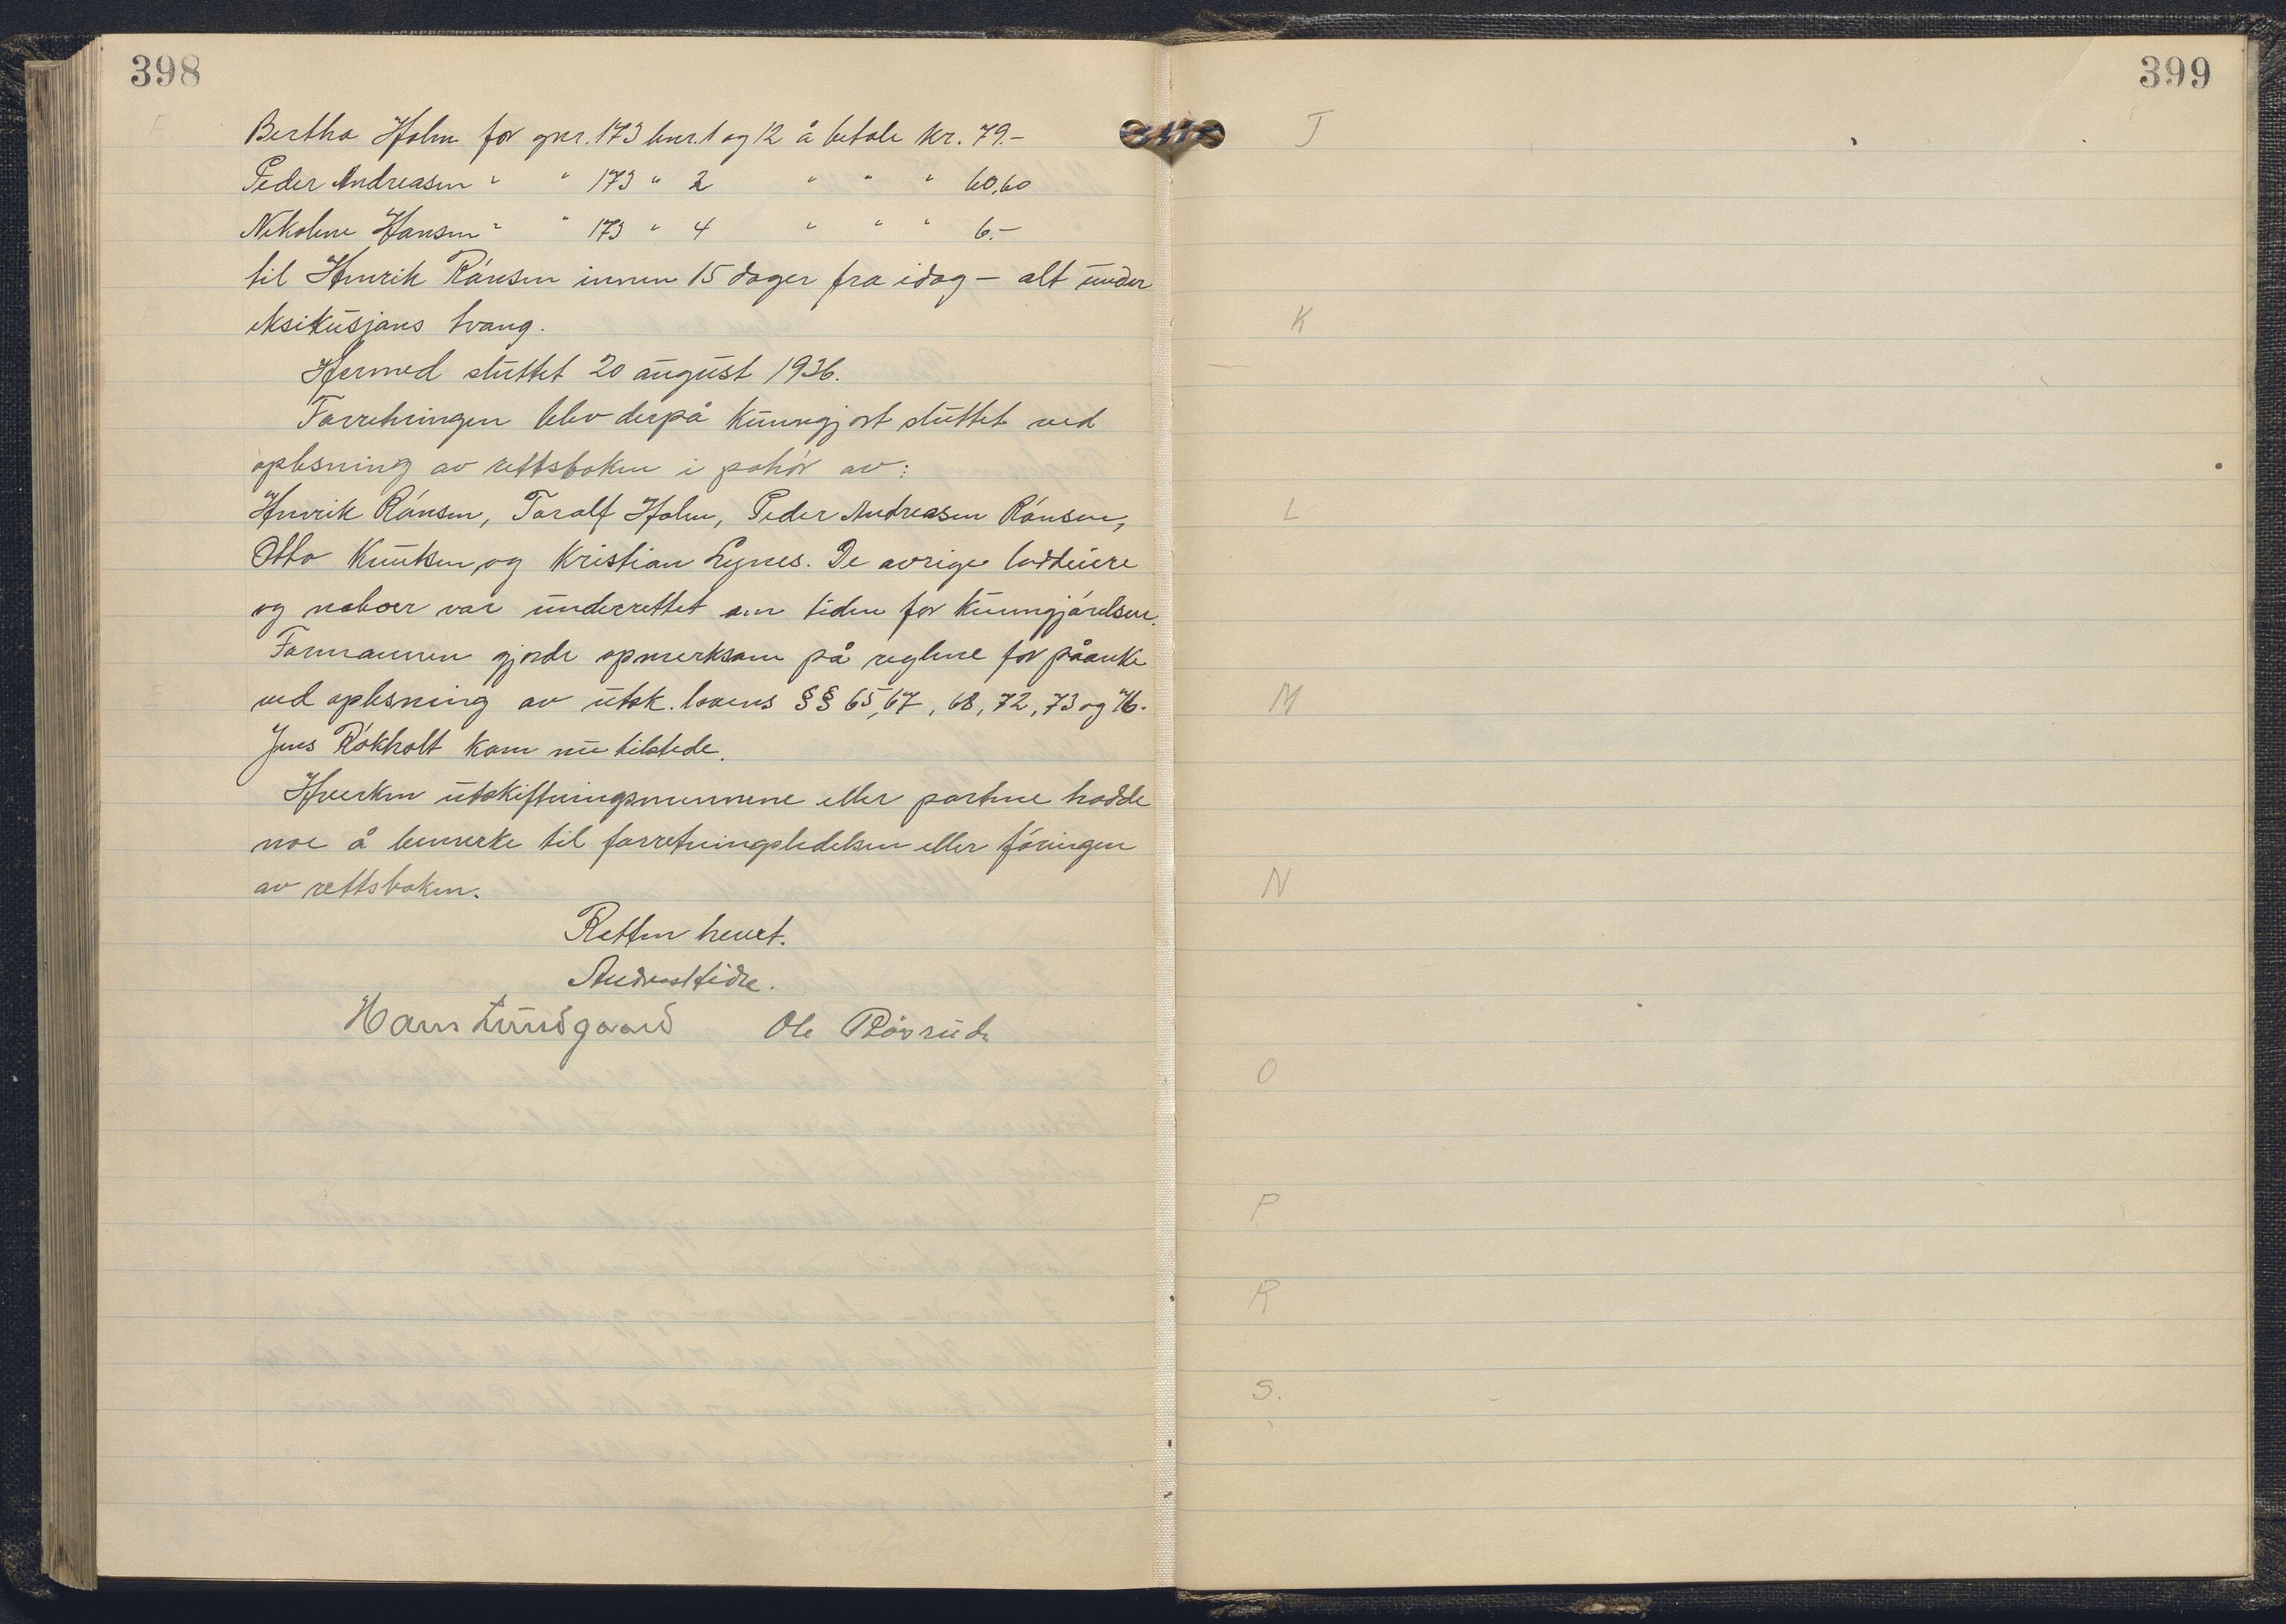 398
Bertha Holm for gnr. 173 bnr. 1 og 12 å betale kr. 79.-
Peder Andreasen " " 173 " 2 " " " 60,60
Nikoline Hansen " " 173 " 4 " " " 6.-
til Henrik Rønsen innen 15 dager fra idag - alt under
eksikusjons tvang.
Hermed sluttet 20 august 1936.
Forretningen blev derpå kunngjort sluttet ved
oplesning av rettsboken i påhør av:
Henrik Rønsen, Toralf Holm, Peder Andreasen Rønsen,
Otto Knutsen og Kristian Lynes. De øvrige loddeiere
og naboer var underrettet om tiden for kunngjørelsen.
Formannen gjorde opmerksom på reglene for påanke
ved oplesning av utsk. lovens §§ 65, 67, 68, 72, 73 og 76.
Jens Røkholt kom nu tilstede.
Hverken utskiftningsmennene eller partene hadde
noe å bemerke til forretningsledelsen eller føringen
av rettsboken.
Retten hevet.
Andreas Hidle.
Hans Lundgaard Ole Røsrud
399
J
K
L
M
N
O
P
R
S.